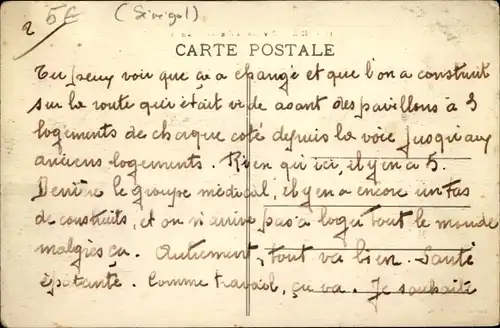 2 5€ (Sénégal)
CARTE POSTALE
Tu peux voir que ça a changé et que l'on a construit
sur la route qui était vide avant des pavillons à 3
logements de chaque coté depuis la voie jusqu'aux
anciens logements. Rien qui ici, il y en a 5.
Derrière le groupe médical, il y en a encore un tas
de construits, et on n'arrive pas à loger tout le monde
malgrès ça. Autrement, tout va bien. Santé
épatante. Comme travail, ça va. Je souhaite